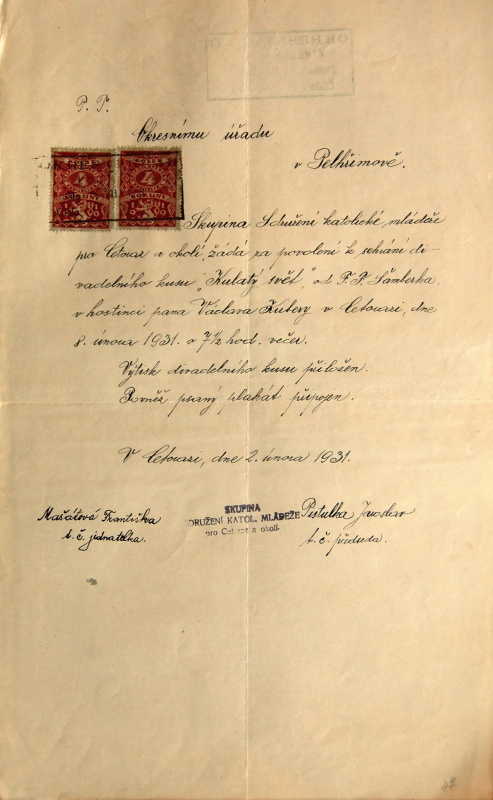 P. T.
Okresnímu úřadu
v Pelhřimově.
4 4
KORUNY KORUNY
Skupina Sdružení katolické mládeže
pro Cetoraz a okolí, žádá za povolení k sehrání di-
vadelního kusu "Kulatý svět" od F. F. Šamberka
v hostinci pana Václava Kubery v Cetorazi, dne
8. února 1931 o 7 1/2 hod. večer.
Výtisk divadelního kusu přiložen.
Rovněž psaný plakát připojen.
V Cetorazi, dne 2. února 1931.
Mašátová Františka
t. č. jednatelka.
SKUPINA
DRUŽENÍ KATOL. MLÁDEŽE
pro Cetoraz a okolí
Pistulka Jaroslav
t. č. předseda.